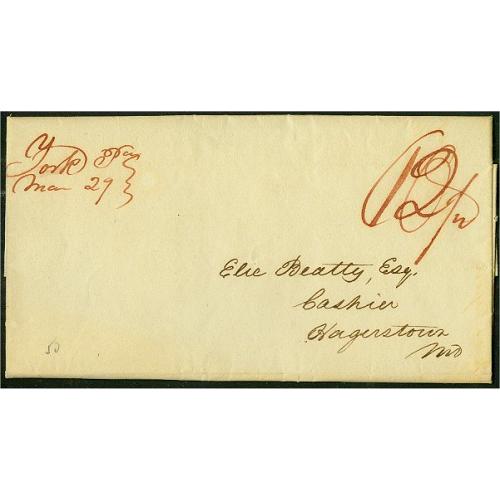 York Pa
Mar 29
12 1/2
Elie Beatty, Esq.
Cashier
Hagerstown
Md
50